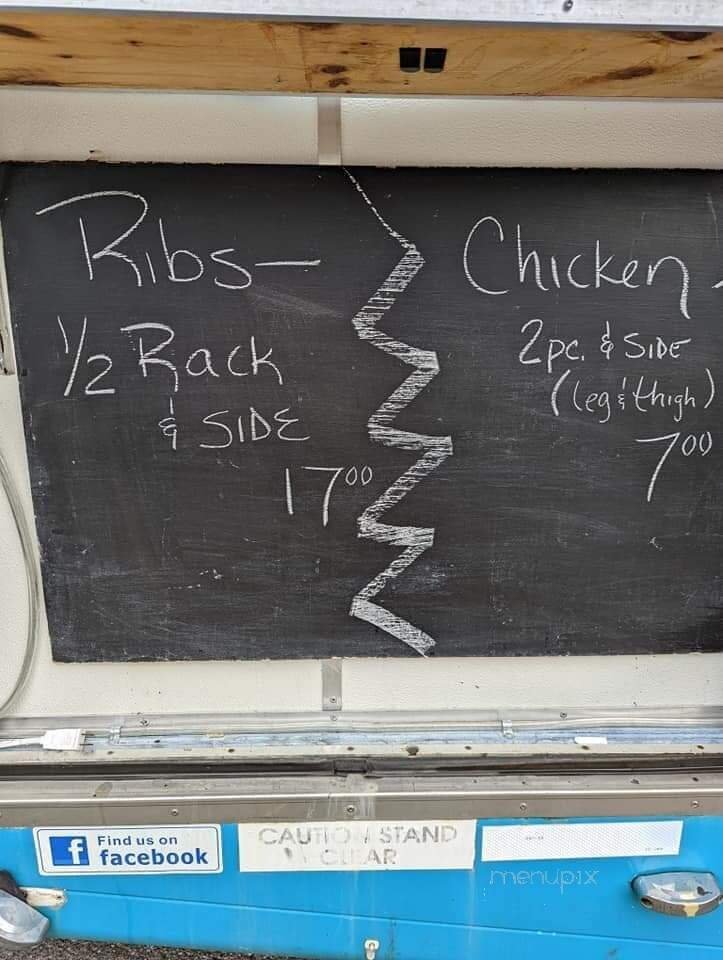 Ribs—
1/2 Rack
& SIDE
17⁰⁰
Chicken -
2pc. & SIDE
(leg & thigh)
7⁰⁰
f Find us on
facebook
CAUTION STAND
CLEAR
menupix